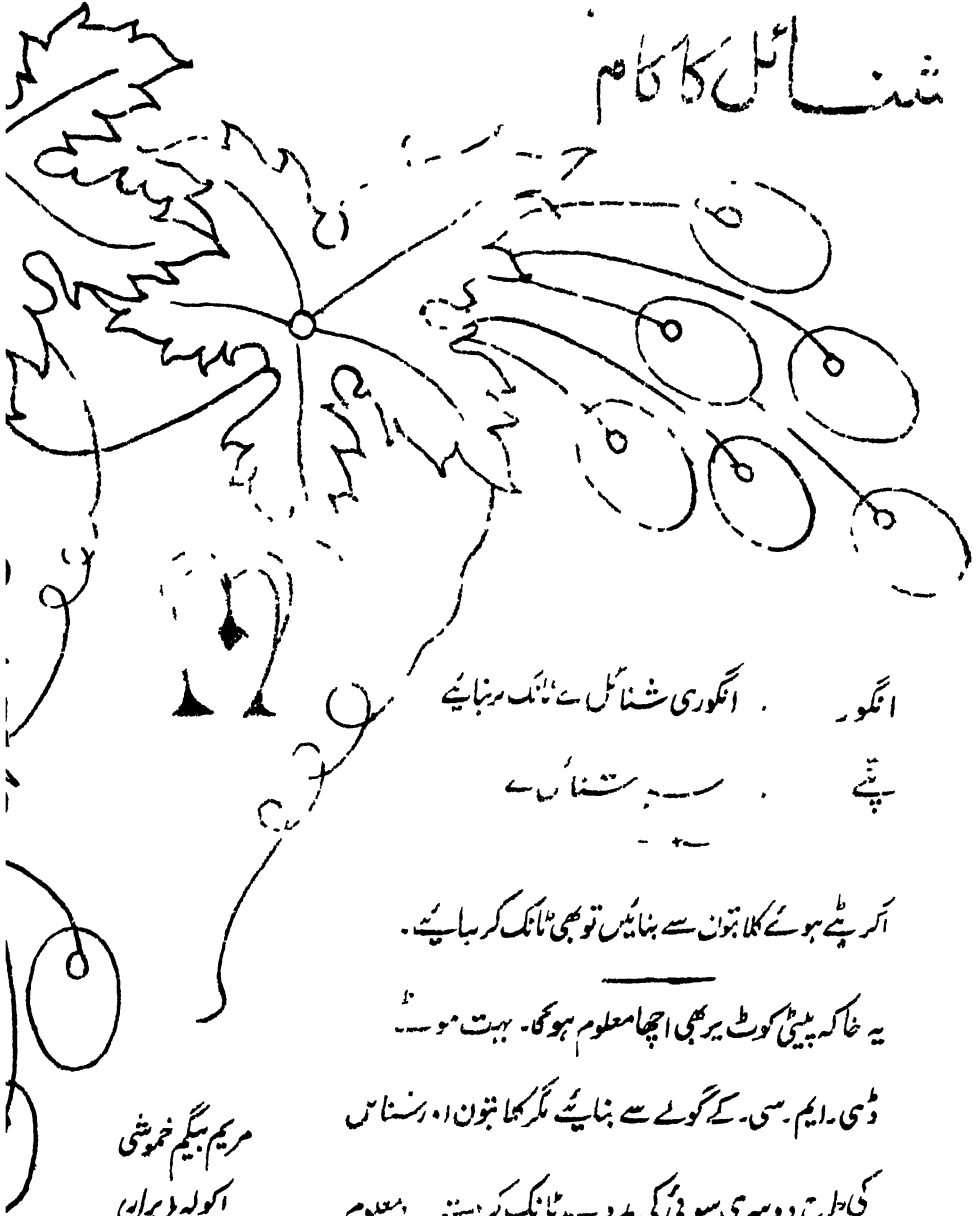 شنائل کا کام
انگور . انگوری شنائل سے ٹانک کر بنایئے
پتّے . سبز شنائل سے
اگر بٹے ہوئے کلابتون سے بنائیں تو بھی ٹانک کر بنایئے.
یہ خاکہ پیٹی کوٹ پر بھی اچھا معلوم ہوگا۔ بہت موٹے
ڈی۔ایم۔سی۔ کے گولے سے بنایئے مگر کلابتون اور شنائل
کی طرح دوسری سوئی کی مدد سے ٹانک کر معلوم
مریم بیگم خموشی
اکولہ (برار)